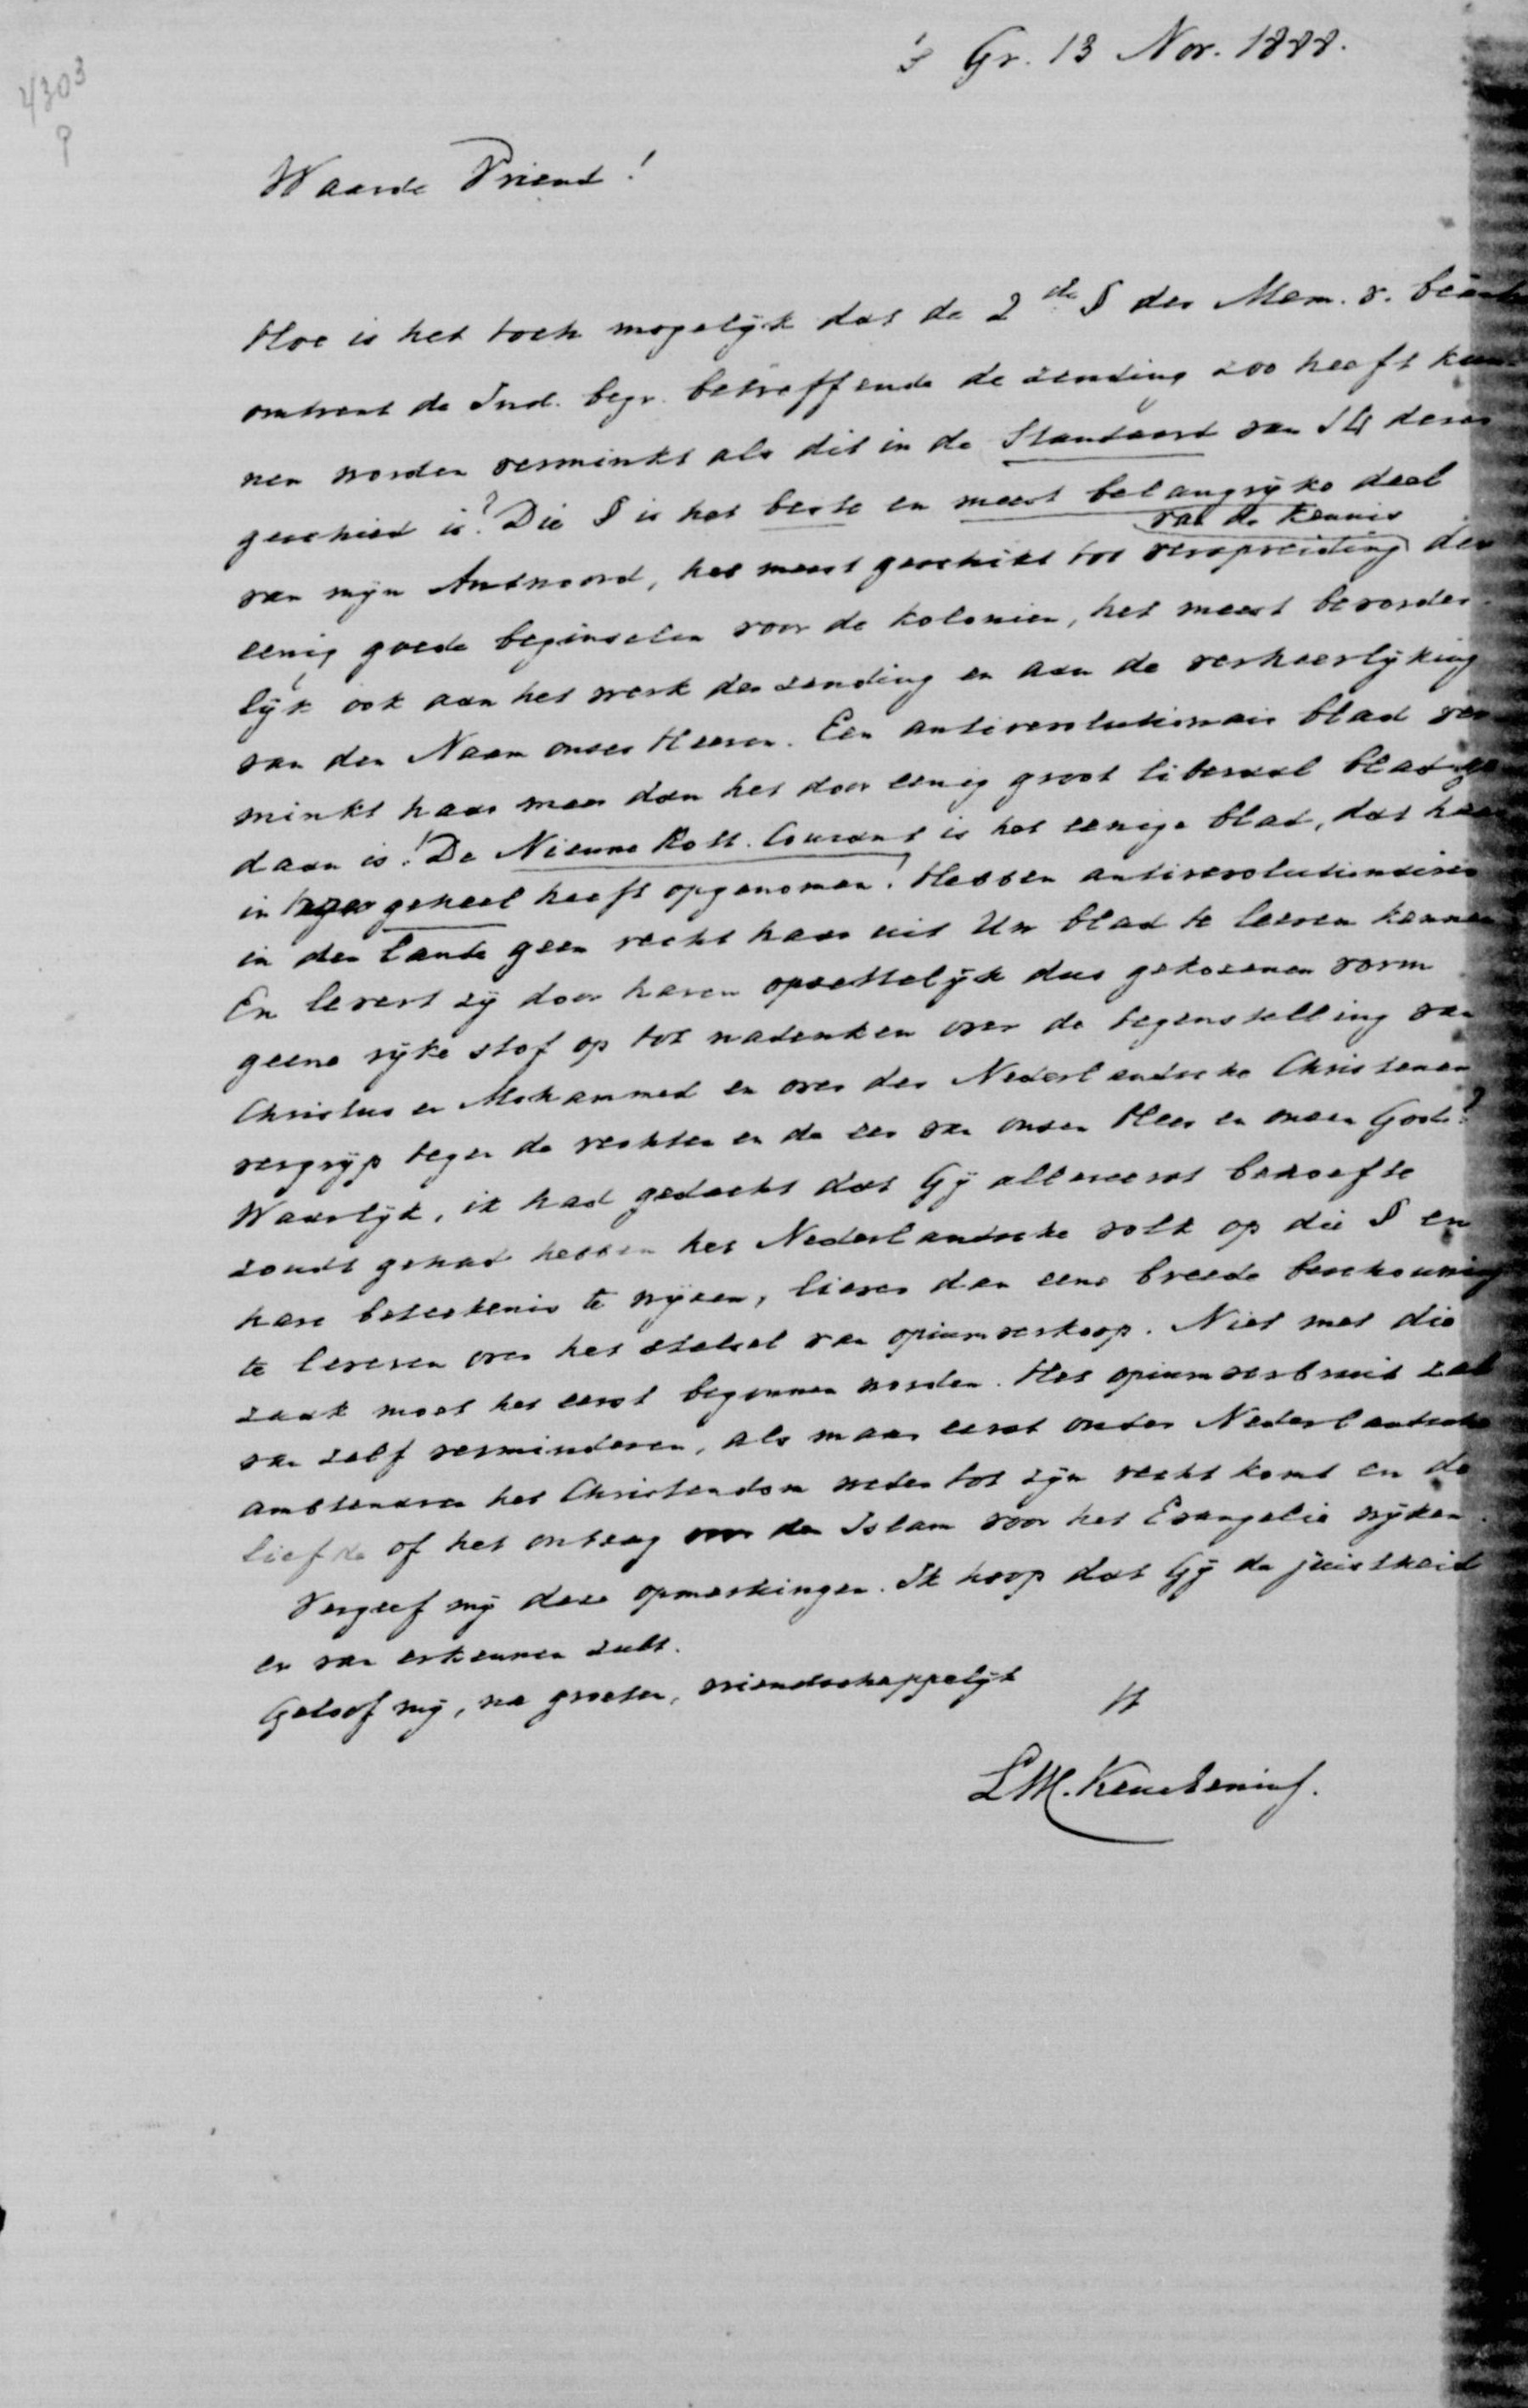 's Gr. 13 Nov. 1888.
4303
Waarde Vriend!
Hoe is het toch mogelijk dat de 2de § der Mem. v. beant
omtrent de Ind. begr. betreffende de zending zoo heeft kun-
nen worden verminkt als dit in de Standaard van 14 dezer
geschied is? Die § is het beste en meest belangryke deel
van de kennis
van mijn Antwoord, het meest geschikt tot verspreiding der
eenig goede beginselen voor de kolonien, het meest bevorder-
lijk ook aan het werk der zending en aan de verheerlyking
van den Naam onzes Heeren. Een antirevolutionair blad ver
minkt haar meer dan het door eenig groot liberaal blad ge
daan is! De Nieuwe Rott. Courant is het eenige blad, dat haar
in geheel heeft opgenomen! Hebben antirevolutionairen
in den lande geen recht haar uit Uw blad te leeren kennen
En levert zij door haren opzettelijk dus gekozenen vorm
geene rijke stof op tot nadenken over de tegenstelling van
Christus en Mohammed en over der Nederlandsche Christenen
vergrijp tegen de rechten en de eer van onzen Heer en onzen God?
Waarlijk, ik had gedacht dat Gij allereerst behoefte
zoudt gehad hebben het Nederlandsche volk op die § en
hare beteekenis te wijzen, liever dan eene breede beschouwing
te leveren over het stelsel van opiumverkoop. Niet met die
zaak moet het eerst begonnen worden. Het opiumverbruik zal
van zelf verminderen, als maar eerst onder Nederlandsche
ambtenaren het Christendom weder tot zijn recht komt en de
liefde of het ontzag voor den Islam voor het Evangelie wijken.
Vergeef mij deze opmerkingen. Ik hoop dat Gij de juistheid
er van erkennen zult.
Geloof mij, na groeten, vriendschappelijk
LWC. Keuchenius.